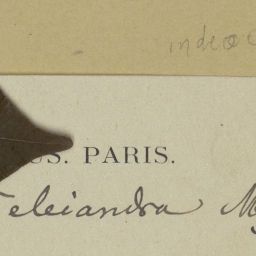 indeo
US. PARIS.
eleiandra My